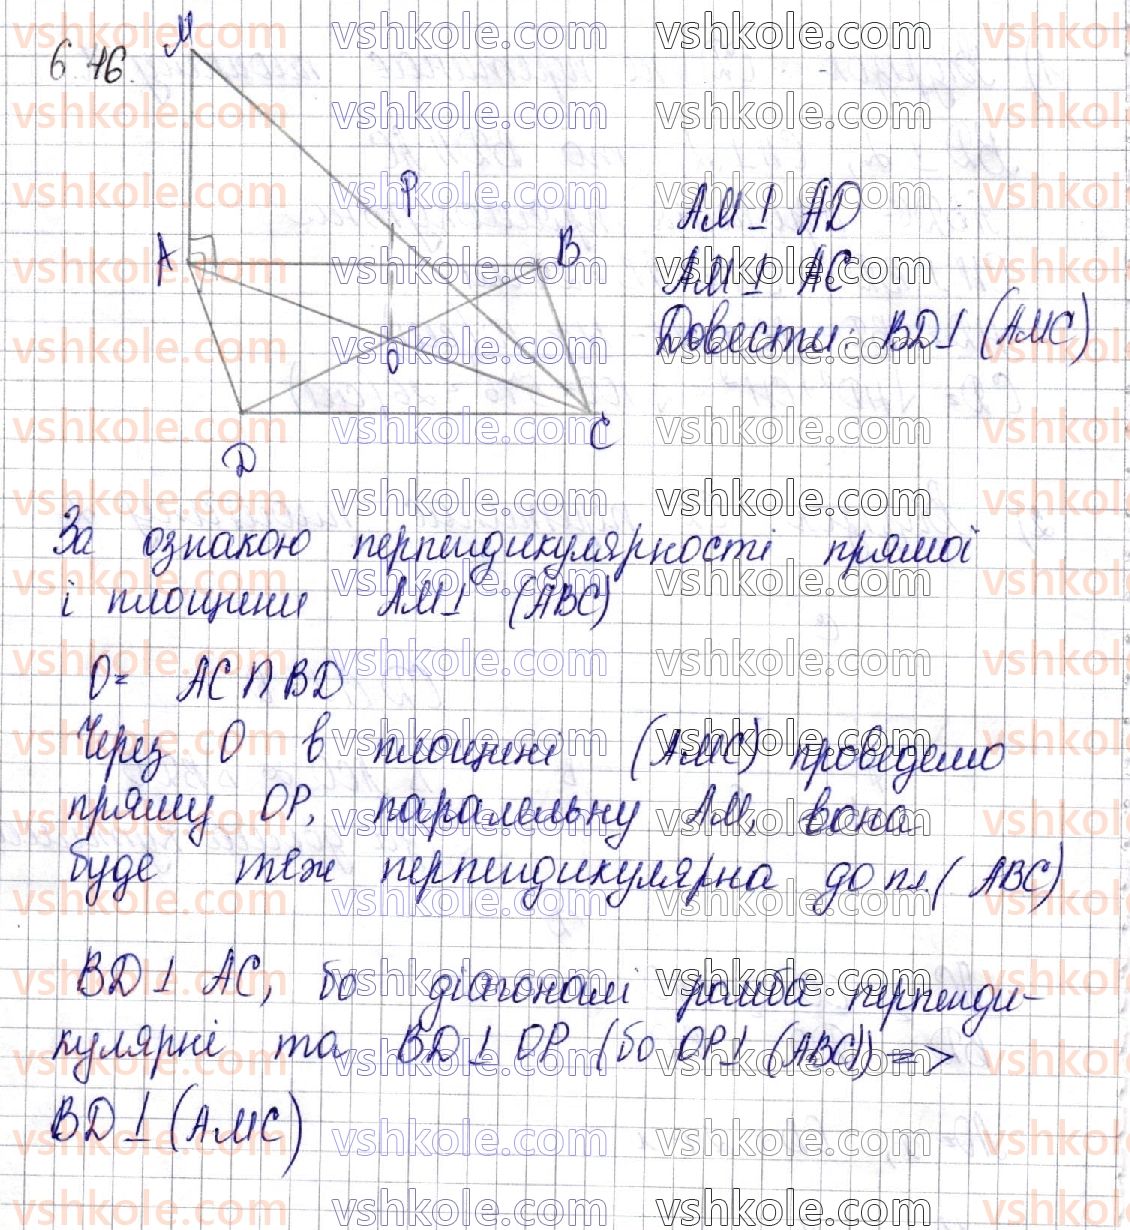 6.46.
M
P
A
B
O
D
C
AM⊥ AD
AM⊥ AC
Довести: BD⊥ (AMC)
За ознакою перпендикулярності прямої
і площини AM⊥ (ABC)
O= AC∩BD
Через O в площині (AMC) проведемо
пряму OP, паралельну AM, вона
буде теж перпендикулярна до пл. (ABC)
BD⊥ AC, бо діагоналі ромба перпенди-
кулярні та BD⊥OP (бо OP⊥ (ABC)) =>
BD⊥(AMC)
vshkole.com